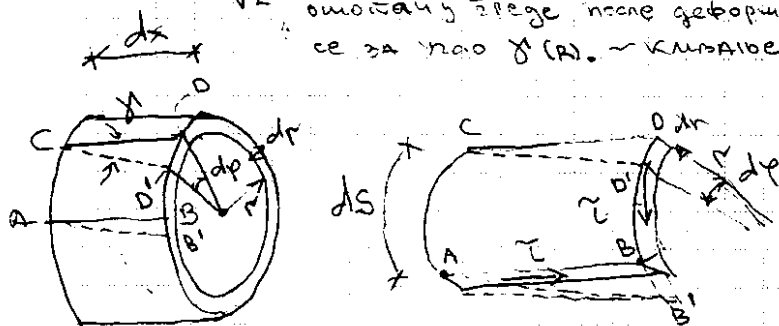 омотачу греде после деформ
се за угао γ(R). ~ клизање
dx
γ
D
C
dr
dφ
r
r
D'
A
B
B'
C
D
dr
r
dφ
D'
dS
τ
B
A
τ
B'